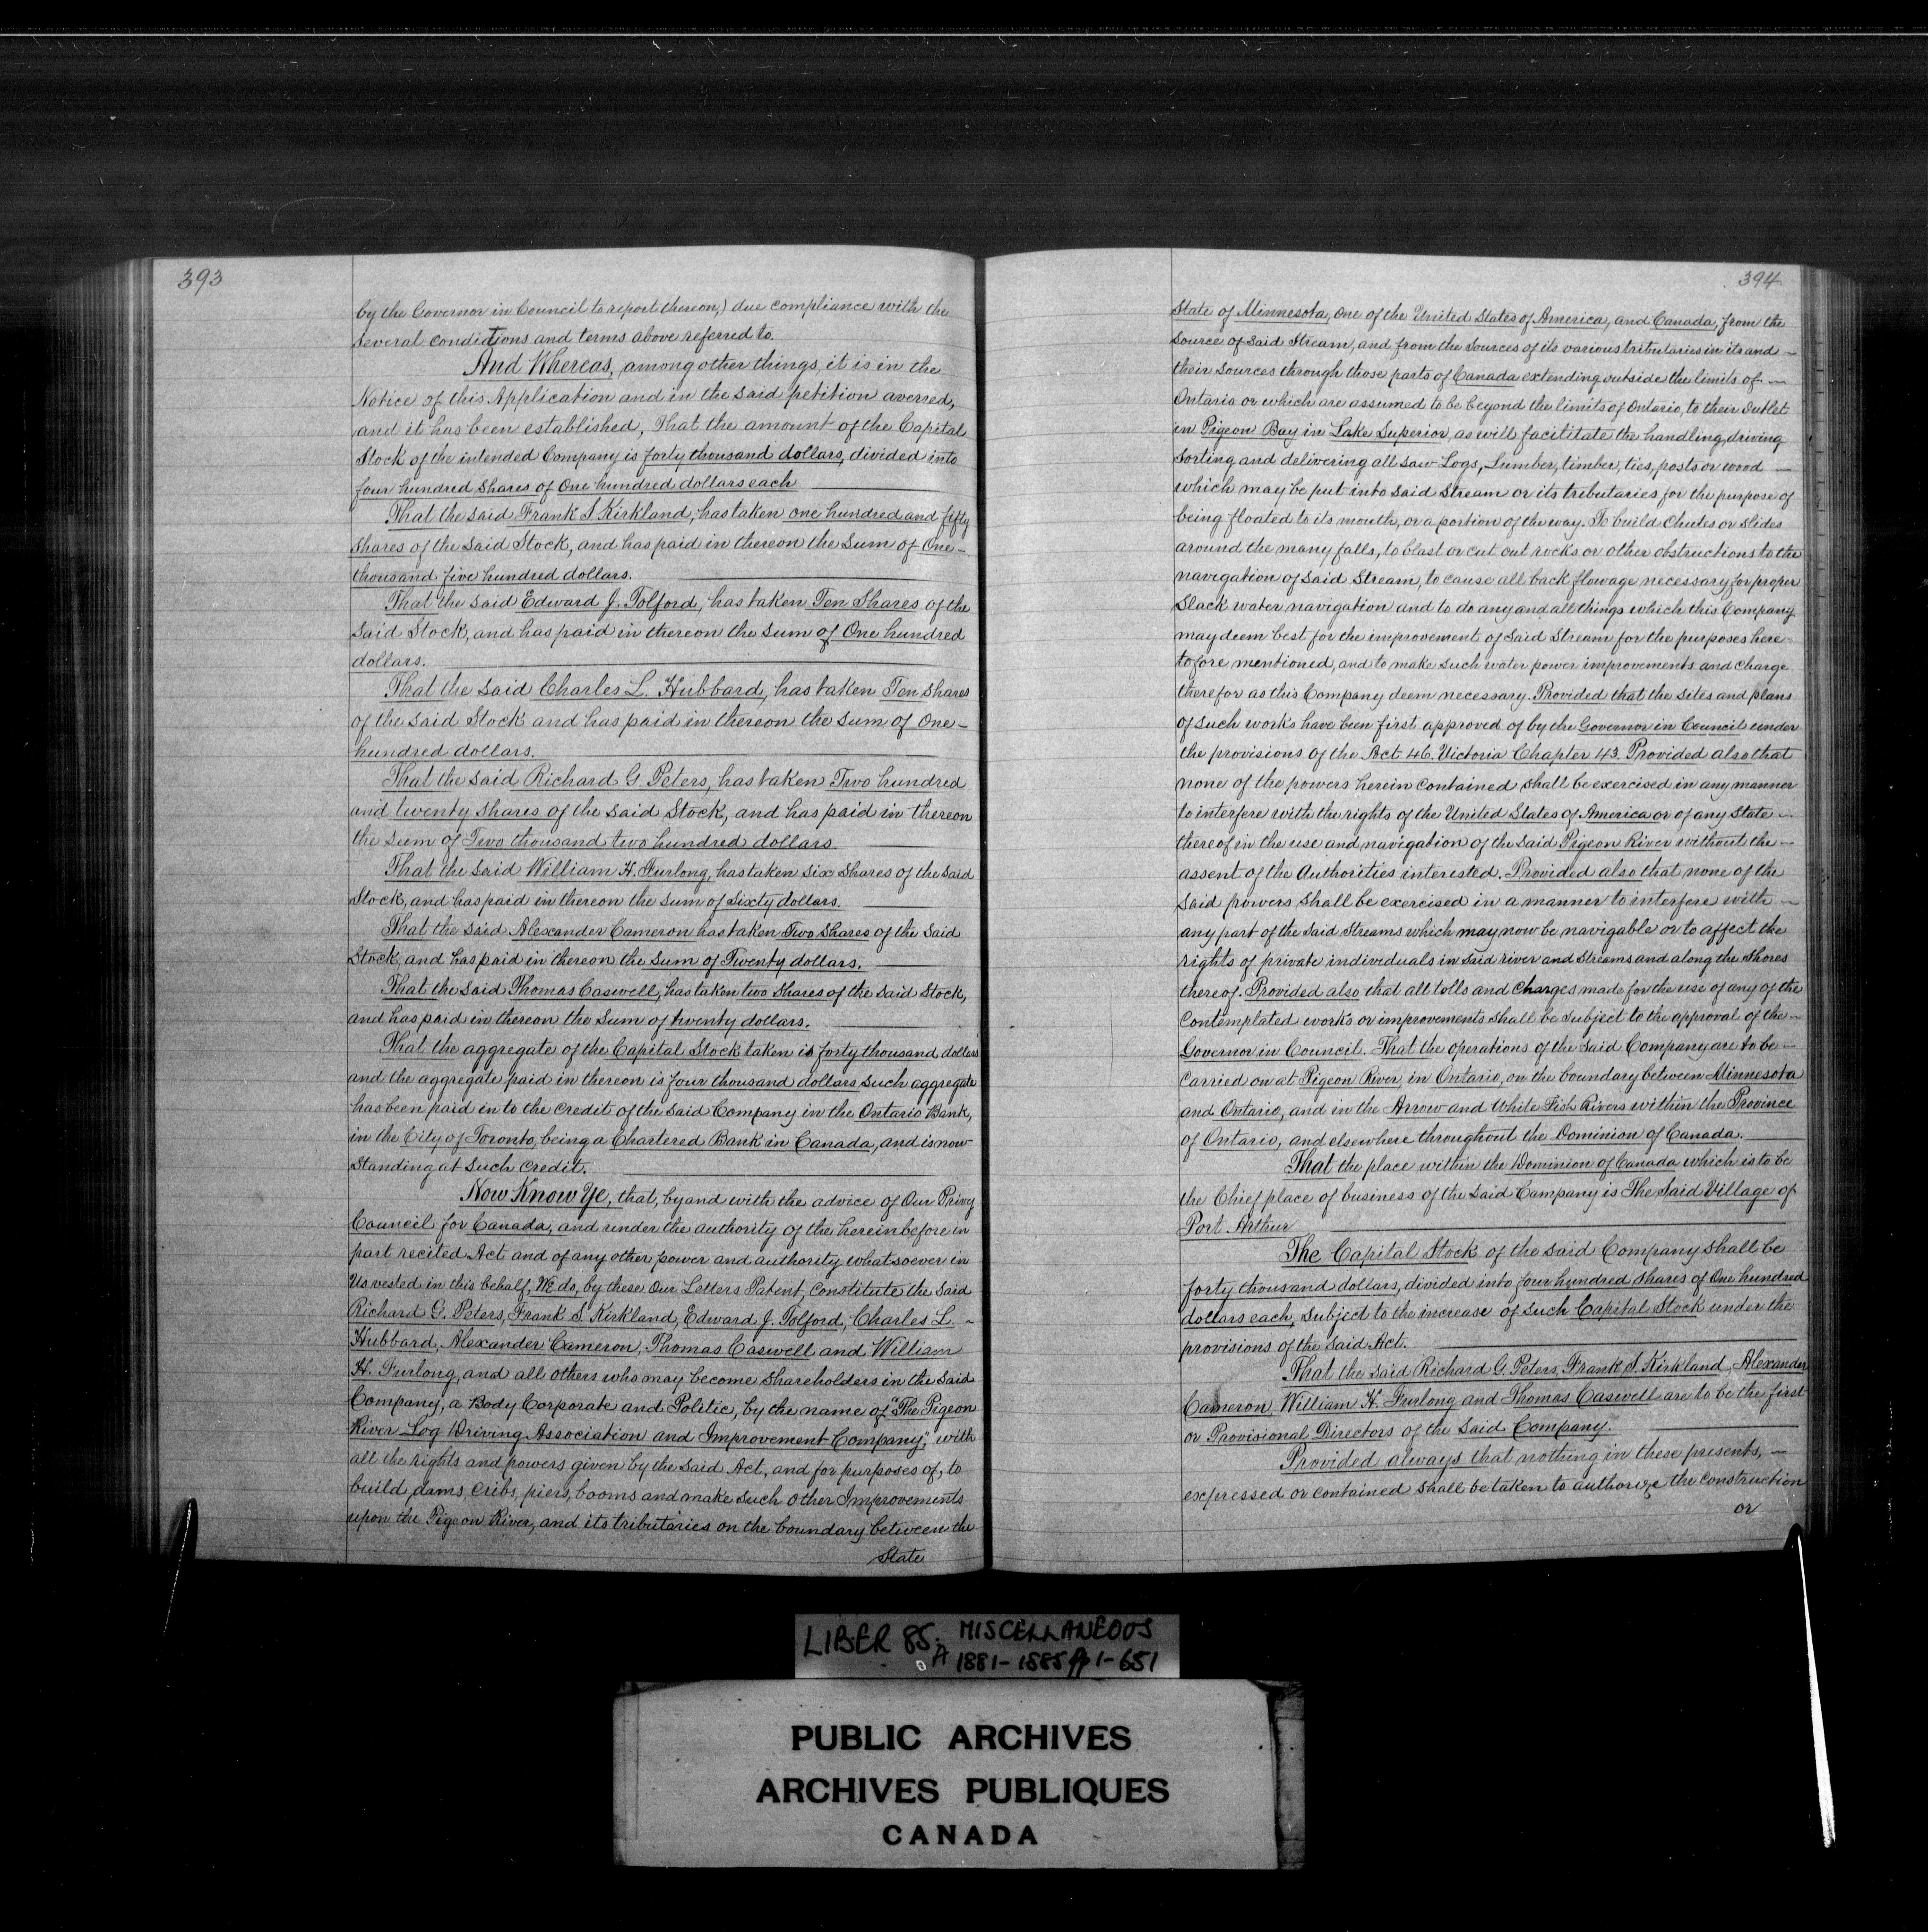 393
by the Governor in Council to report thereon,) due compliance with the
several conditions and terms above referred to.
And Whereas, among other things, it is in the
Notice of this Application and in the said petition averred,
and it has been established, That the amount of the Capital
Stock of the intended Company is forty thousand dollars, divided into
four hundred shares of One hundred dollars each
That the said Frank S. Kirkland, has taken one hundred and fifty
shares of the said Stock, and has paid in thereon the sum of One-
thousand five hundred dollars.
That the said Edward J. Tolford, has taken Ten Shares of the
said Stock, and has paid in thereon the sum of One hundred
dollars.
That the said Charles L. Hubbard, has taken Ten shares
of the said Stock and has paid in thereon the sum of One-
hundred dollars.
That the said Richard G. Peters, has taken Two hundred
and twenty shares of the said Stock, and has paid in thereon
the sum of Two thousand two hundred dollars
That the said William H. Furlong, has taken six shares of the said
Stock, and has paid in thereon the sum of Sixty dollars.
That the said Alexander Cameron has taken Two shares of the said
Stock, and has paid in thereon the sum of Twenty dollars.
That the said Thomas Caswell, has taken two shares of the said Stock,
and has paid in thereon the sum of twenty dollars.
That the aggregate of the Capital Stock taken is forty thousand dollars
and the aggregate paid in thereon is four thousand dollars such aggregate
has been paid in to the credit of the said Company in the Ontario Bank,
in the City of Toronto, being a Chartered Bank in Canada, and is now
standing at such credit.
Now Know Ye, that, by and with the advice of Our Privy
Council for Canada, and under the authority of the hereinbefore in
part recited Act and of any other power and authority whatsoever in
Us vested in this behalf, We do, by these Our Letters Patent, constitute the said
Richard G. Peters, Frank S. Kirkland, Edward J. Tolford, Charles L. -
Hubbard, Alexander Cameron, Thomas Caswell and William
H. Furlong, and all others who may become shareholders in the said
Company, a Body Corporate and Politic, by the name of "The Pigeon
River Log Driving Association and Improvement Company", with
all the rights and powers given by the said Act, and for purposes of, to
build dams, cribs, piers, booms and make such other Improvements
upon the Pigeon River, and its tributaries on the boundary between the
State
394
State of Minnesota, one of the United States of America, and Canada, from the
source of said Stream, and from the sources of its various tributaries in its and -
their sources through those parts of Canada extending outside the limits of -
Ontario or which are assumed to be beyond the limits of Ontario, to their outlet
in Pigeon Bay in Lake Superior, as will facilitate the handling, driving
sorting and delivering all saw Logs, Lumber, timber, ties, posts or wood -
which may be put into said Stream or its tributaries for the purpose of
being floated to its mouth, or a portion of the way. To build Chutes or slides
around the many falls, to blast or cut out rocks or other obstructions to the
navigation of said Stream, to cause all back flowage necessary for proper
slack water navigation and to do any and all things which this Company
may deem best for the improvement of said Stream for the purposes here-
tofore mentioned, and to make such water power improvements and charge
therefor as this Company deem necessary. Provided that the sites and plans
of such works have been first approved of by the Governor in Council under
the provisions of the Act 46. Victoria Chapter 43. Provided also that
none of the powers herein contained shall be exercised in any manner
to interfere with the rights of the United States of America or of any State -
thereof in the use and navigation of the said Pigeon River without the -
assent of the Authorities interested. Provided also that none of the
said powers shall be exercised in a manner to interfere with -
any part of the said Streams which may now be navigable or to affect the
rights of private individuals in said river and streams and along the shores
thereof. Provided also that all tolls and charges made for the use of any of the
Contemplated works or improvements shall be subject to the approval of the -
Governor in Council. That the operations of the said Company are to be -
carried on at Pigeon River, in Ontario, on the boundary between Minnesota
and Ontario, and in the Arrow and White Fish Rivers within the Province
of Ontario, and elsewhere throughout the Dominion of Canada.
That the place within the Dominion of Canada which is to be
the Chief place of business of the said Company is The said Village of
Port Arthur
The Capital Stock of the said Company shall be
forty thousand dollars, divided into four hundred shares of One hundred
dollars each, subject to the increase of such Capital Stock under the
provisions of the said Act.
That the said Richard G. Peters, Frank S. Kirkland, Alexander
Cameron, William H. Furlong and Thomas Caswell are to be the first
or Provisional Directors of the said Company.
Provided always that nothing in these presents, -
expressed or contained shall be taken to authorize the construction
or
LIBER 85. MISCELLANEOUS
A 1881-1885 pp 1-651
PUBLIC ARCHIVES
ARCHIVES PUBLIQUES
CANADA